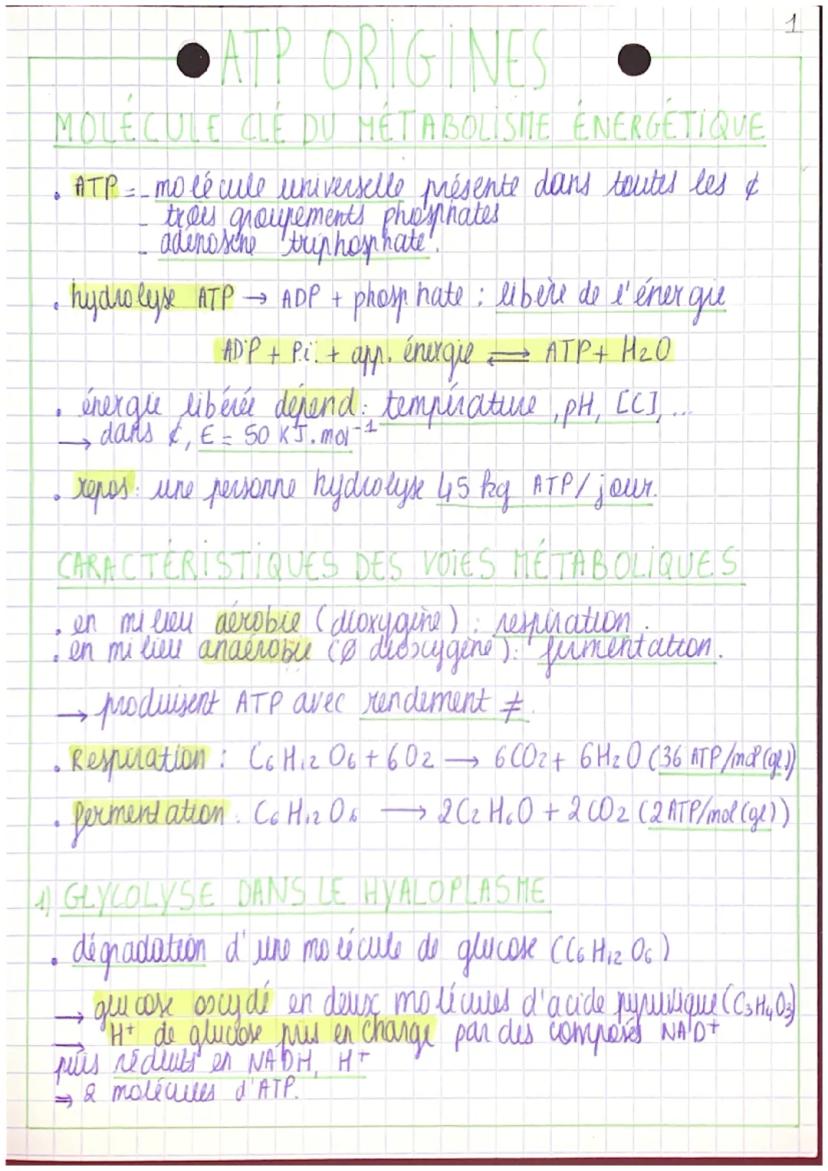 1
ATP ORIGINES
MOLÉCULE CLÉ DU MÉTABOLISME ÉNERGÉTIQUE
. ATP = - molécule universelle présente dans toutes les ¢
- trois groupements phosphates
- adénosine triphosphate.
. hydrolyse ATP → ADP + phosphate : libère de l'énergie
ADP + Pi + app. énergie ⇌ ATP + H2O
. énergie libérée dépend : température, pH, [C], ...
→ dans ¢, E = 50 kJ.mol-1
. repos : une personne hydrolyse 45 kg ATP/jour.
CARACTÉRISTIQUES DES VOIES MÉTABOLIQUES
. en milieu aérobie (dioxygène) : respiration.
. en milieu anaérobie (Ø dioxygène) : fermentation.
→ produisent ATP avec rendement ≠.
. Respiration : C6H12O6 + 6O2 → 6CO2 + 6H2O (36 ATP/mol(gl))
. fermentation : C6H12O6 → 2C2H6O + 2CO2 (2ATP/mol(gl))
1) GLYCOLYSE DANS LE HYALOPLASME
. dégradation d'une molécule de glucose (C6H12O6)
→ glucose oxydé en deux molécules d'acide pyruvique (C3H4O3)
→ H+ de glucose pris en charge par des composés NAD+
puis réduits en NADH, H+
⇒ 2 molécules d'ATP.